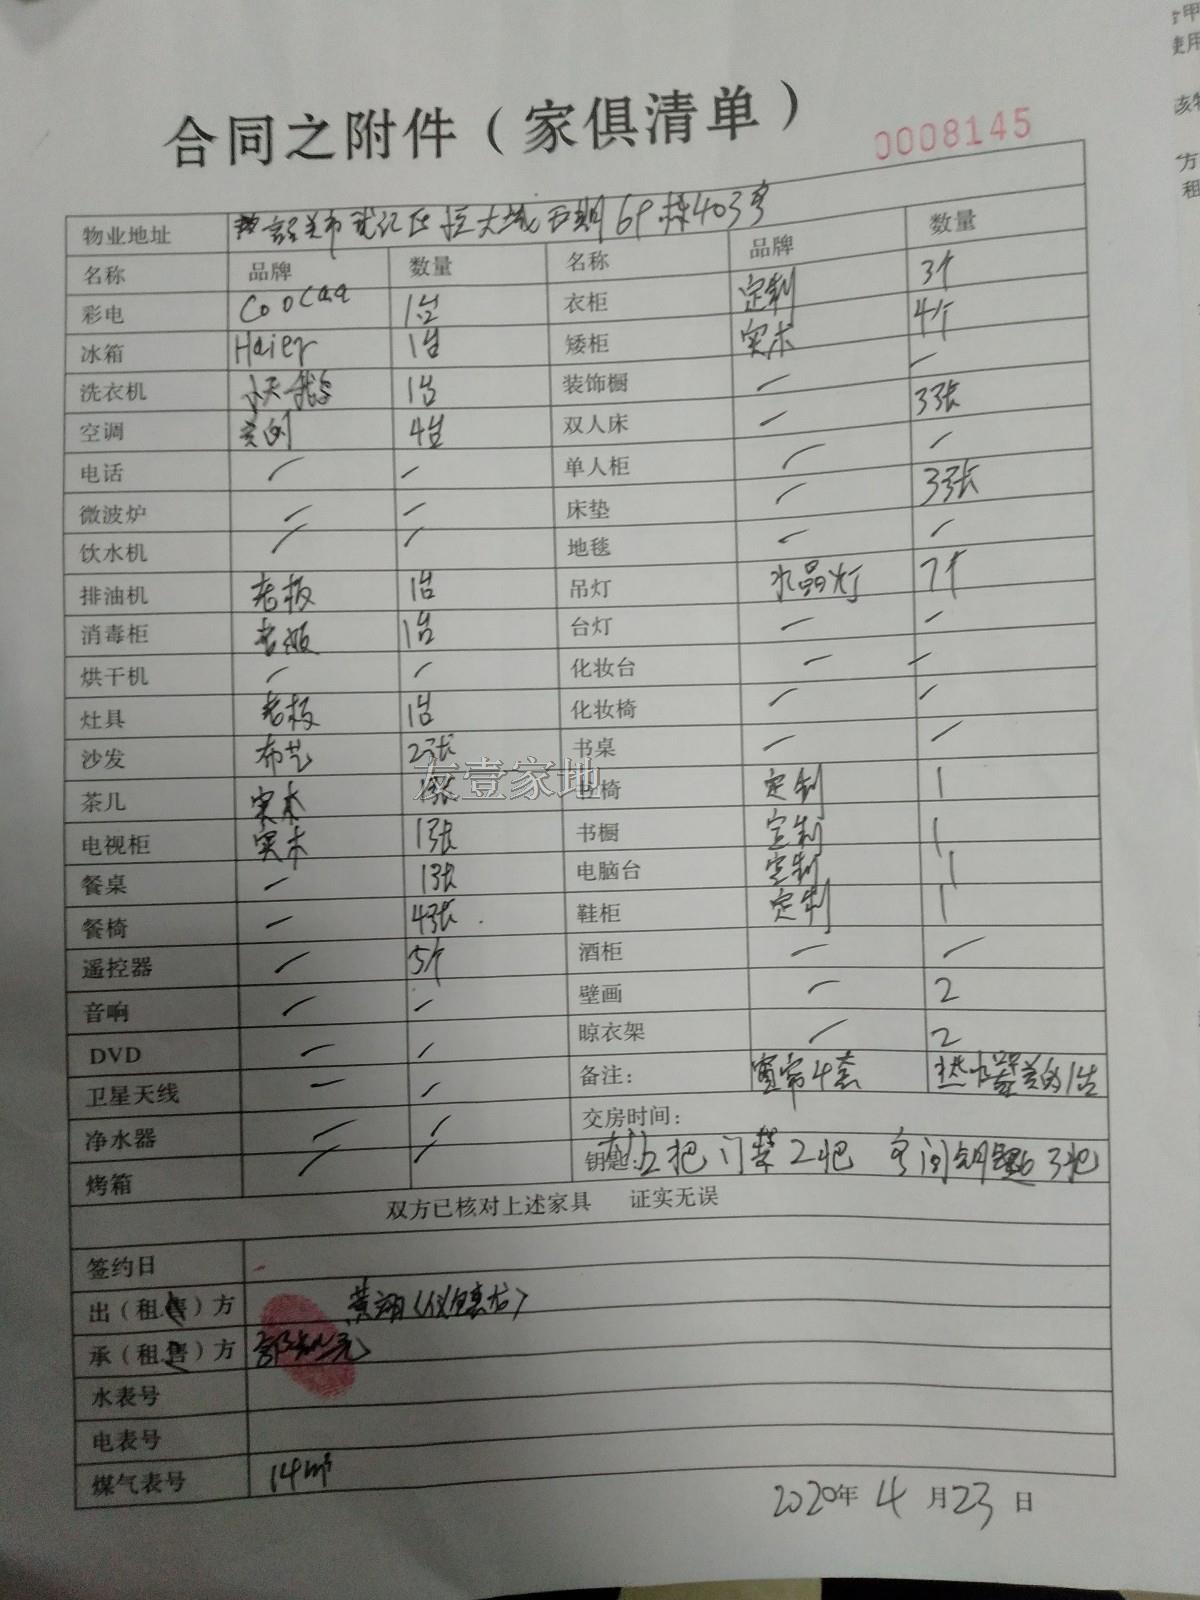 合同之附件（家俱清单）
0008145
物业地址 韶关市武江区恒大城五期69栋403号
名称 品牌 数量 名称 品牌 数量
彩电 Coocaa 1台 衣柜 定制 3个
冰箱 Haier 1台 矮柜 实木 4个
洗衣机 小天鹅 1台 装饰橱 — —
空调 美的 4台 双人床 — 3张
电话 — — 单人柜 — —
微波炉 — — 床垫 — 3张
饮水机 — — 地毯 — —
排油机 老板 1台 吊灯 水晶灯 7个
消毒柜 老板 1台 台灯 — —
烘干机 — — 化妆台 — —
灶具 老板 1台 化妆椅 — —
沙发 布艺 2张 书桌 — —
茶几 实木 1张 椅 定制 1
友壹家地
电视柜 实木 1张 书橱 定制 1
餐桌 — 1张 电脑台 定制 1
餐椅 — 4张 鞋柜 定制 1
遥控器 — 5个 酒柜 — —
音响 — — 壁画 — 2
DVD — — 晾衣架 — 2
卫星天线 — — 备注: 窗帘4套 热水器美的1台
净水器 — — 交房时间:
烤箱 — — 钥匙: 2把 门禁2把 房间钥匙3把
双方已核对上述家具 证实无误
签约日
出（租售）方 黄翊
承（租售）方
水表号
电表号
煤气表号 14m³
2020年4月23日
合甲
使用
该物
方
租